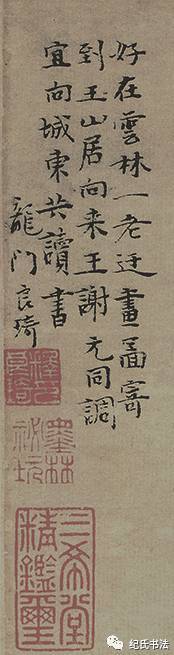 好在雲林一老迂畫圖寄
到玉山居向来王謝元同調
宜向城東共讀書
龍門良琦
釋氏
良琦
墨林
祕玩
三希堂
精鑑璽
纪氏书法